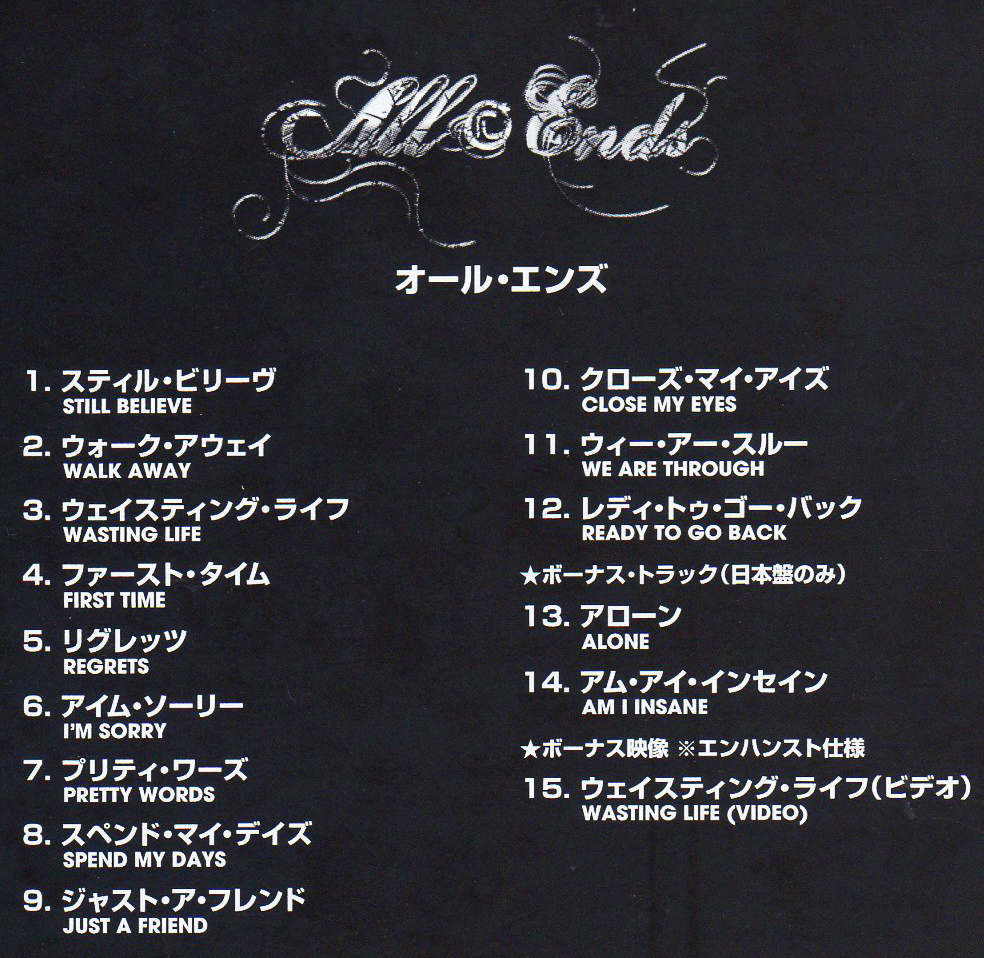 All Ends
オール・エンズ
1. スティル・ビリーヴ
STILL BELIEVE
2. ウォーク・アウェイ
WALK AWAY
3. ウェイスティング・ライフ
WASTING LIFE
4. ファースト・タイム
FIRST TIME
5. リグレッツ
REGRETS
6. アイム・ソーリー
I'M SORRY
7. プリティ・ワーズ
PRETTY WORDS
8. スペンド・マイ・デイズ
SPEND MY DAYS
9. ジャスト・ア・フレンド
JUST A FRIEND
10. クローズ・マイ・アイズ
CLOSE MY EYES
11. ウィー・アー・スルー
WE ARE THROUGH
12. レディ・トゥ・ゴー・バック
READY TO GO BACK
★ボーナス・トラック(日本盤のみ)
13. アローン
ALONE
14. アム・アイ・インセイン
AM I INSANE
★ボーナス映像 ※エンハンスト仕様
15. ウェイスティング・ライフ(ビデオ)
WASTING LIFE (VIDEO)